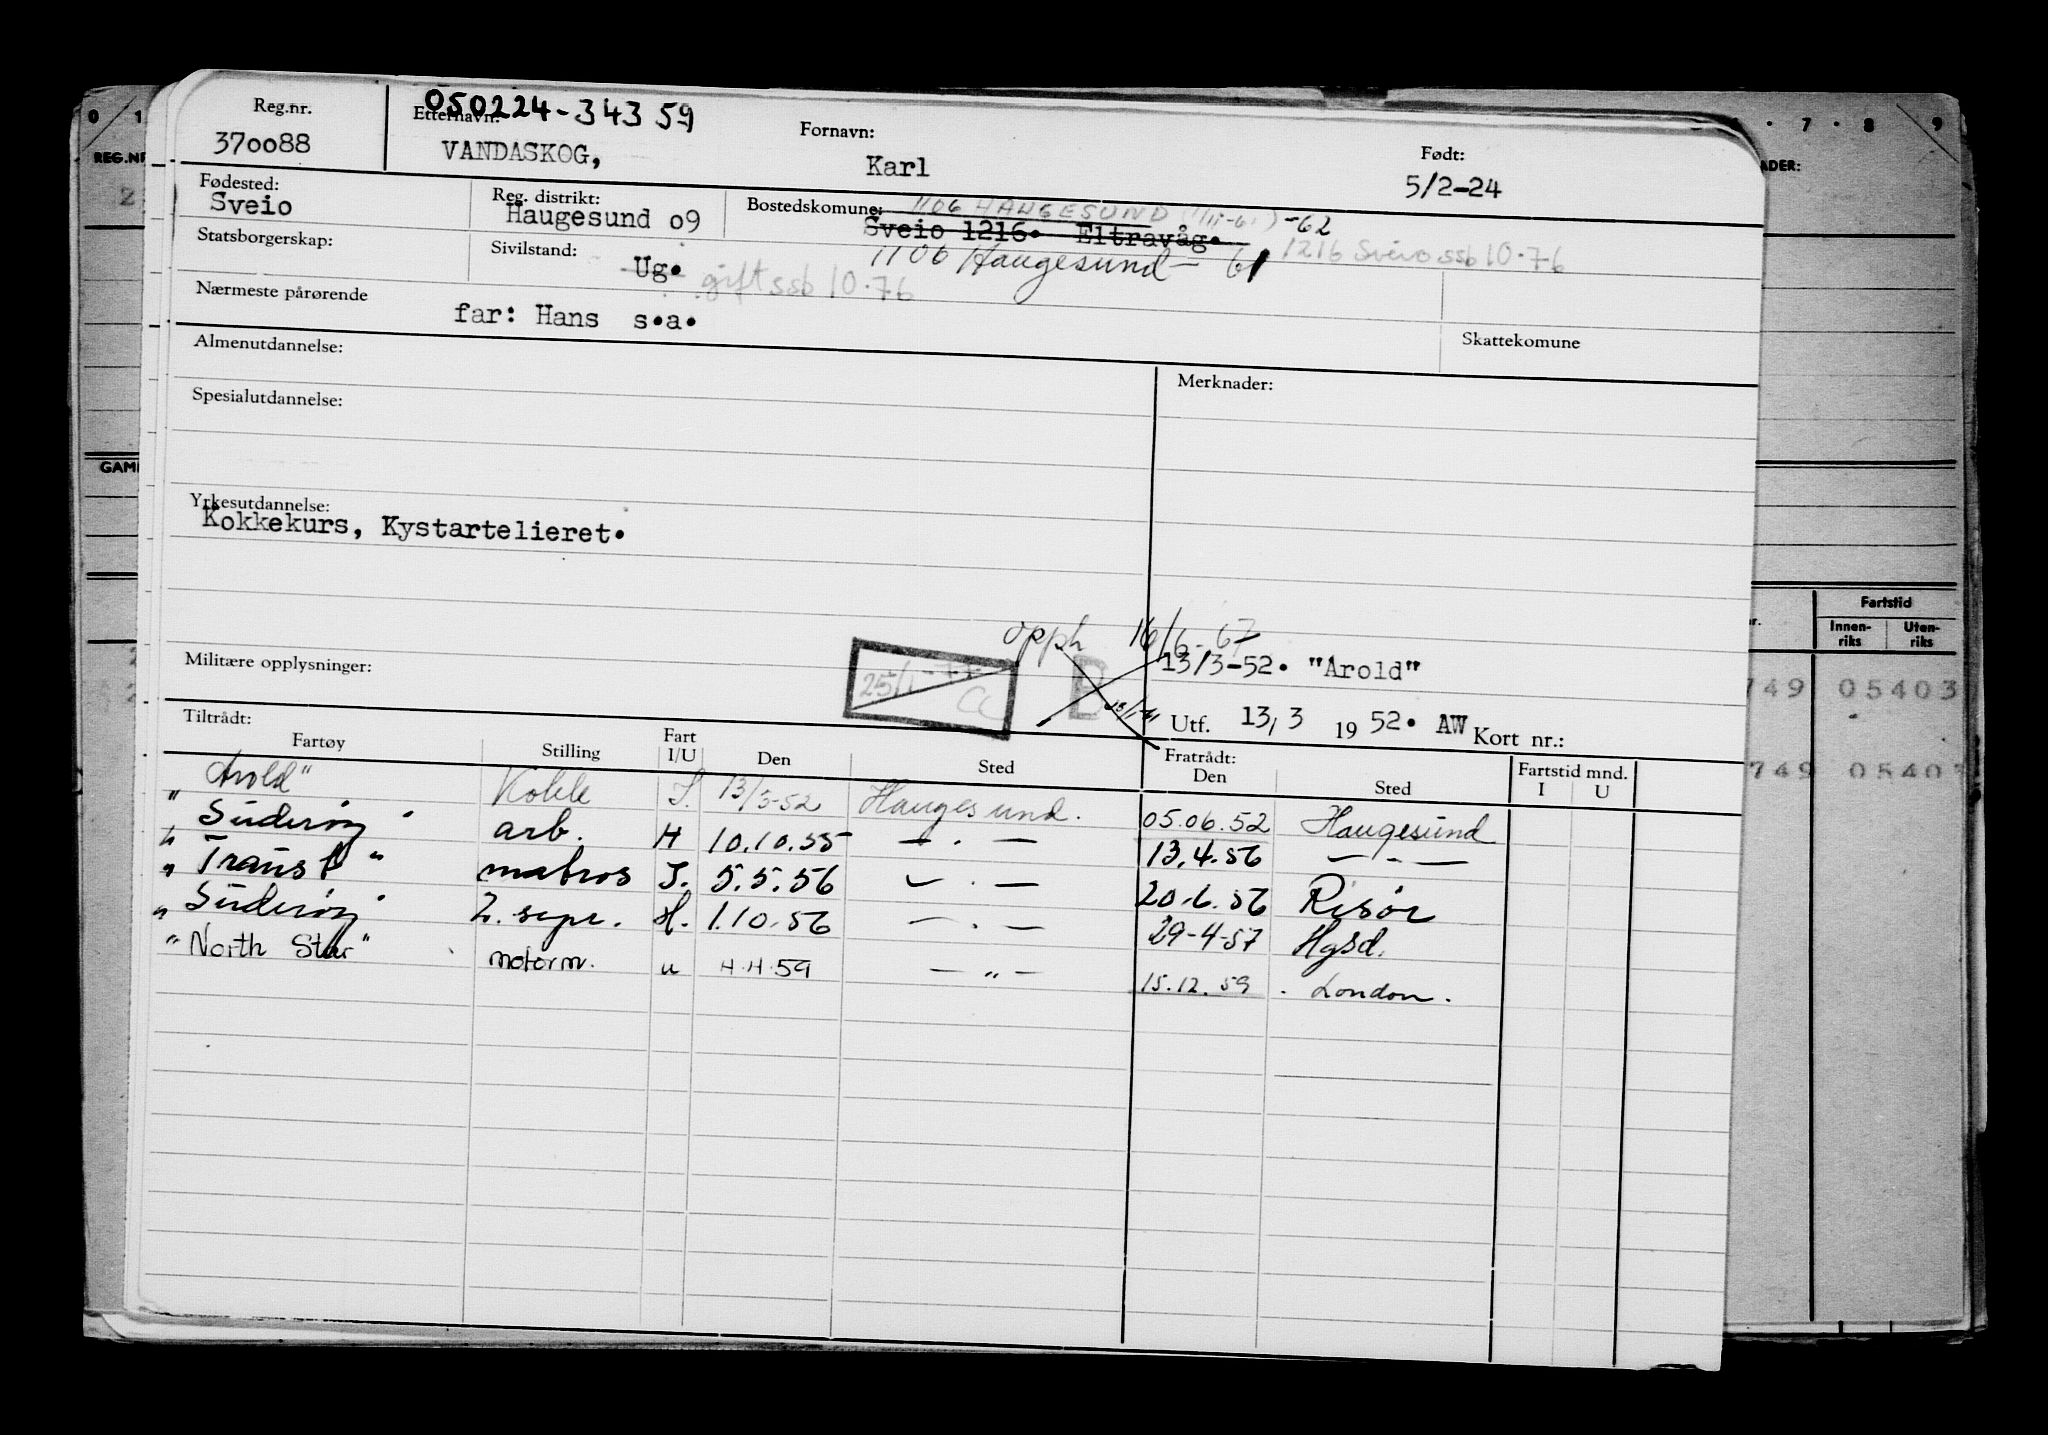 050224-34359
Reg.nr. Etternavn: Fornavn: Født:
370088 VANDASKOG, Karl 5/2-24
Fødested: Reg. distrikt: Bostedskomune: 1106 HAUGESUND -62
Sveio Haugesund 09 Sveio 1216. Eltravåg.
Statsborgerskap: Sivilstand: 1106 Haugesund - 61 1216 Sveio ssb 10.76
Ug. gift ssb 10.76
Nærmeste pårørende
far: Hans s.a.
Skattekomune
Almenutdannelse: Merknader:
Spesialutdannelse:
Yrkesutdannelse:
Kokkekurs, Kystartelieret.
opph 16/6-67
Militære opplysninger: 13/3-52. "Arold"
Utf. 13/3 1952. AW Kort nr.:
Tiltrådt: Fratrådt:
Fartøy Stilling Fart I/U Den Sted Den Sted Fartstid mnd. I U
"Arold" Kokk I. 13/3-52 Haugesund. 05.06.52 Haugesund
"Suderøy" arb. H 10.10.55 — . — 13.4.56 — - —
"Trans" matros I. 5.5.56 — . — 20.6.56 Risør
"Suderøy" H. 1.10.56 — . — 29-4-57 Hgsd.
"North Star" motorm. u 4.4.59 — " — 15.12.59 London.
0 1 7 8 9
REG.NR
ADER:
GAML
Fartstid
Innen-riks Uten-riks
749 05403
749 05403